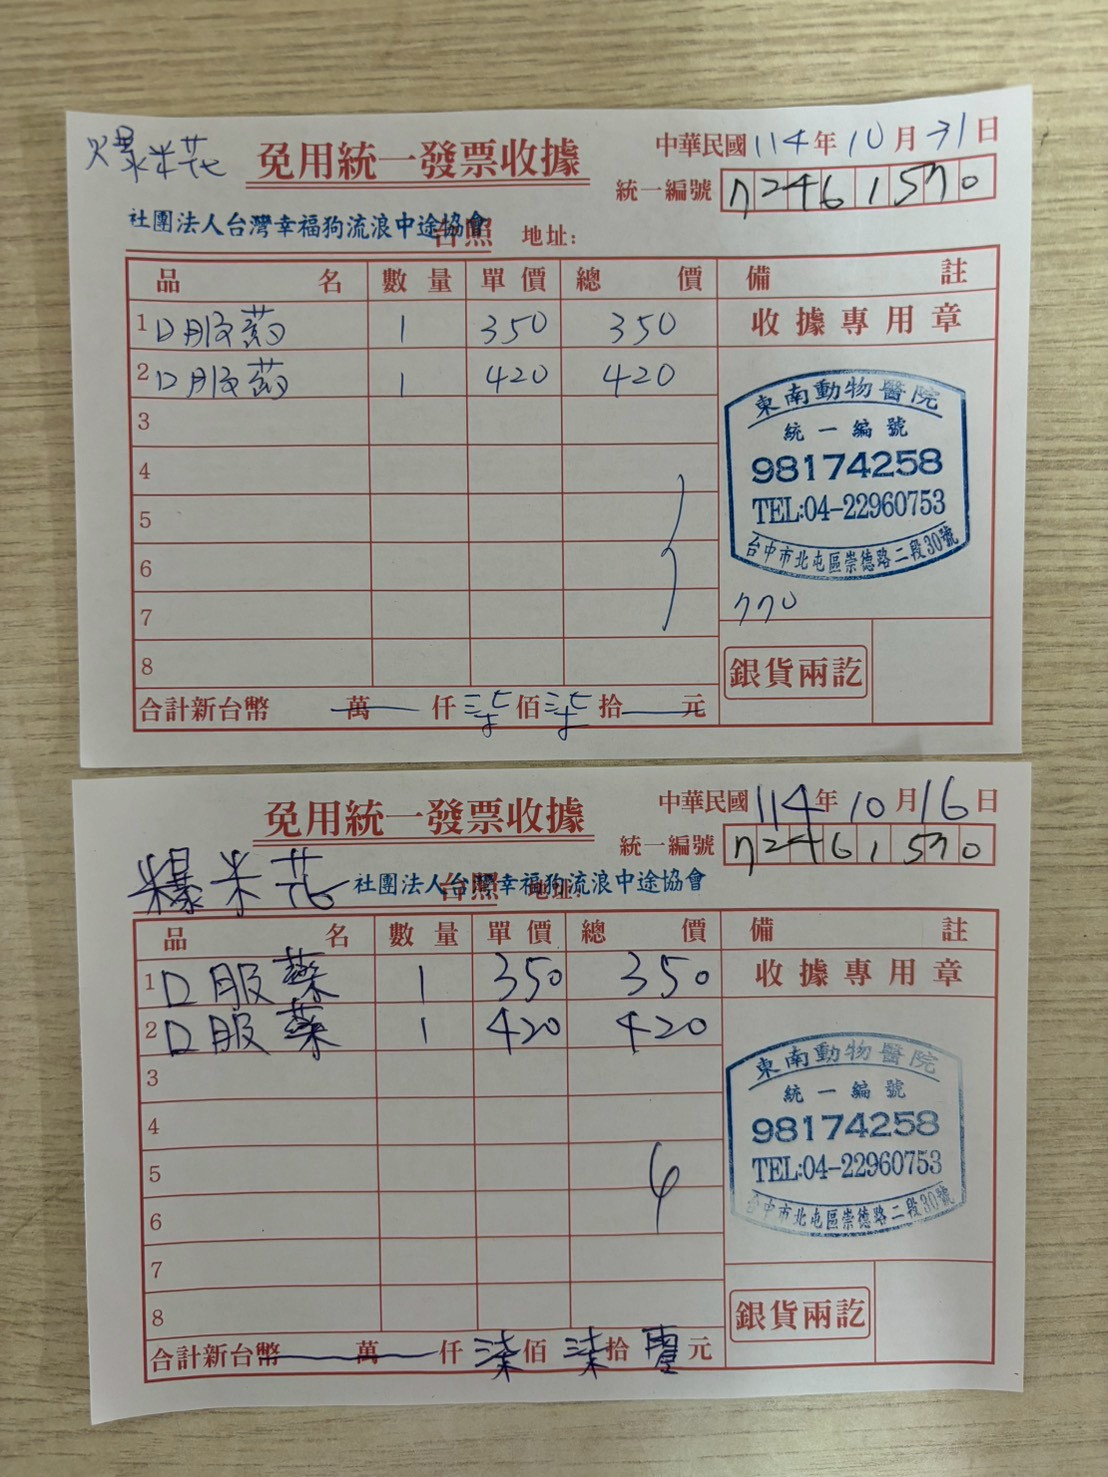 爆米花 免用統一發票收據 中華民國114年10月31日
統一編號 72461570
社團法人台灣幸福狗流浪中途協會 台照 地址:
品名 數量 單價 總價 備註
1 口服药 1 350 350 收據專用章
2 口服药 1 420 420
3
4
5
6
7
8
東南動物醫院
統一編號
98174258
TEL:04-22960753
台中市北屯區崇德路二段30號
770
銀貨兩訖
合計新台幣 萬 仟 柒 佰 柒 拾 元
免用統一發票收據 中華民國114年10月16日
統一編號 72461570
爆米花 社團法人台灣幸福狗流浪中途協會 台照 地址:
品名 數量 單價 總價 備註
1 口服藥 1 350 350 收據專用章
2 口服藥 1 420 420
3
4
5
6
7
8
東南動物醫院
統一編號
98174258
TEL:04-22960753
台中市北屯區崇德路二段30號
銀貨兩訖
合計新台幣 萬 仟 柒 佰 柒 拾 零 元